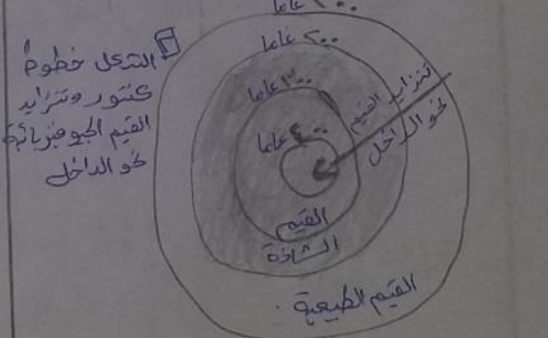 الشكل خطوط
كنتور وتتزايد
القيم الجيوفيزيائية
نحو الداخل
١٠٠ عاما
٢٠٠ عاما
٣٠٠ عاما
٤٠٠ عاما
تتزايد القيم
نحو الداخل
القيم
الشاذة
القيم الطبيعية